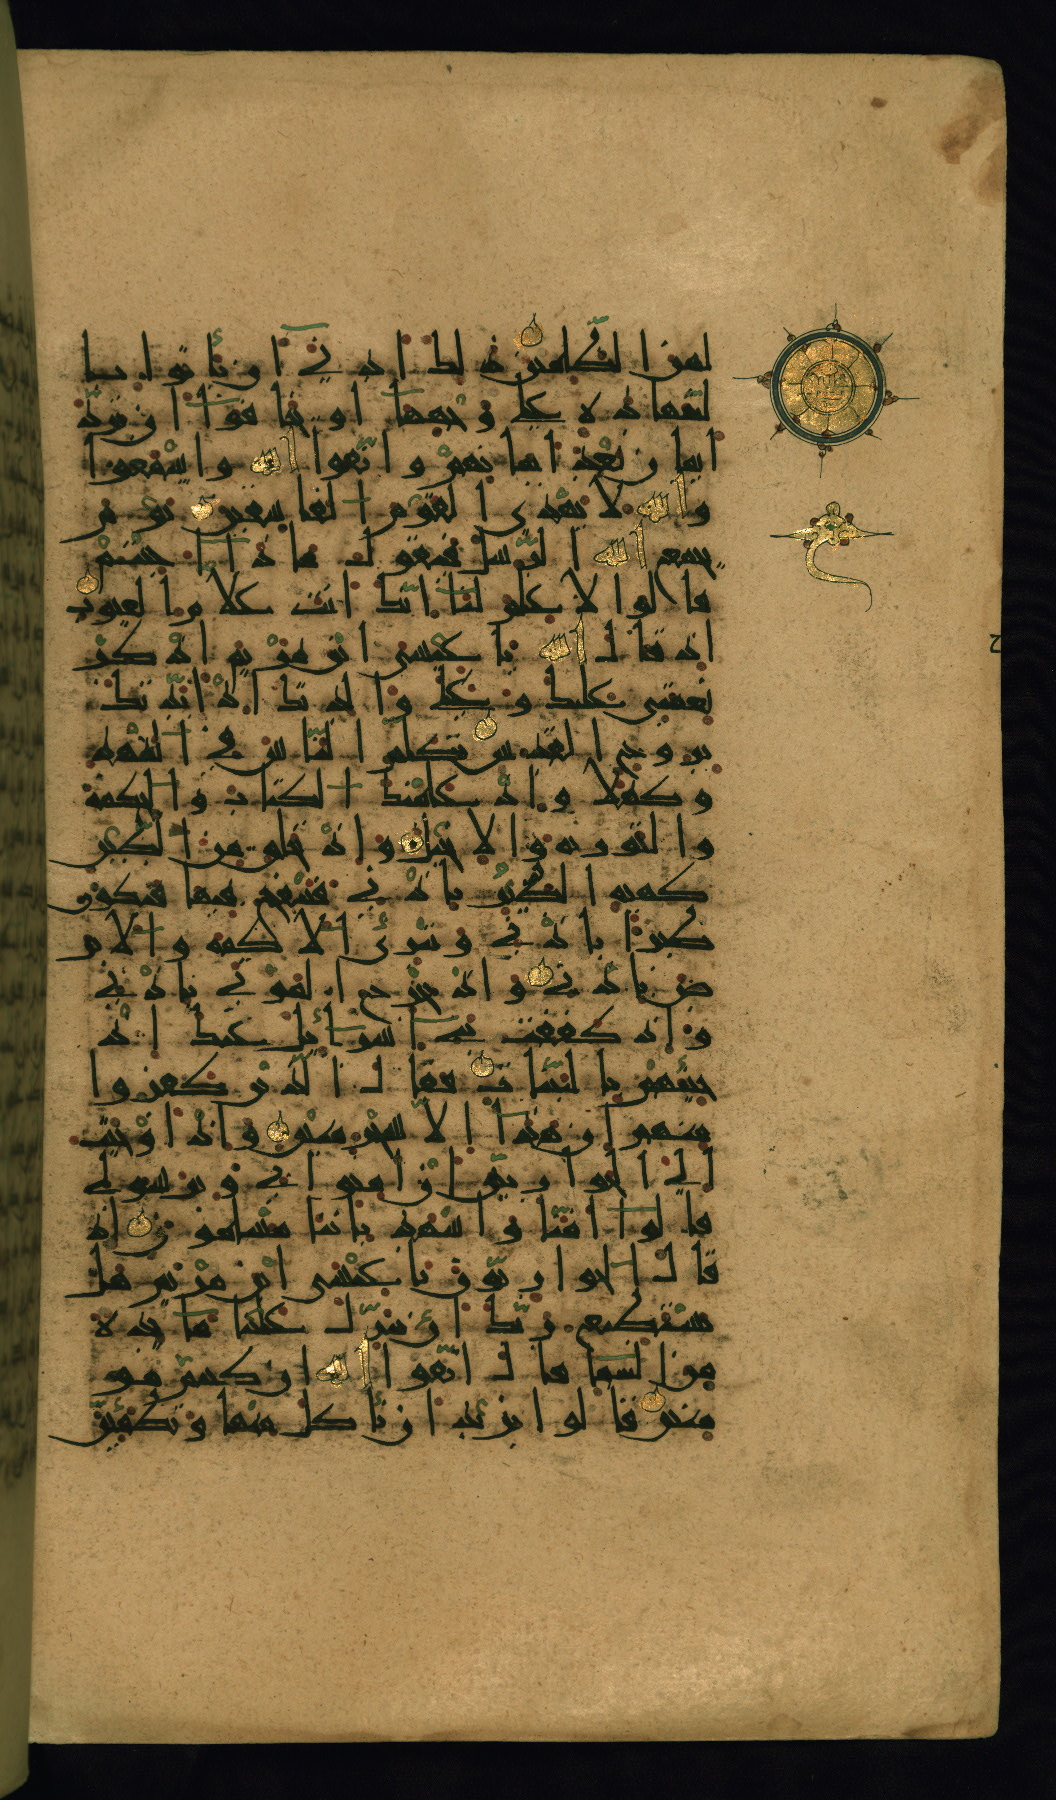 لمن الظلمين ذلك ادنى ان ياتوا با
لشهادة على وجهها او يخافوا ان ترد
ايمان بعد ايمانهم واتقوا الله واسمعوا
والله لا يهدي القوم الفاسقين يوم
يجمع الله الرسل فيقول ماذا اجبتم
قالوا لا علم لنا انك انت علام الغيوب
اذ قال الله يا عيسى ابن مريم اذكر
نعمتي عليك وعلى والدتك اذ ايدتك
بروح القدس تكلم الناس في المهد
وكهلا واذ علمتك الكتاب والحكمة
والتورية والانجيل واذ تخلق من الطين
كهية الطير باذني فتنفخ فيها فتكون
طيرا باذني وتبرئ الاكمه والابر
ص باذني واذ تخرج الموتى باذني
واذ كففت بني اسرائيل عنك اذ
جئتهم بالبينات فقال الذين كفروا
منهم ان هذا الا سحر مبين واذ اوحيت
الى الحواريين ان امنوا بي وبرسولي
قالوا امنا واشهد باننا مسلمون اذ
قال الحواريون يا عيسى ابن مريم هل
يستطيع ربك ان ينزل علينا مائدة
من السماء قال اتقوا الله ان كنتم مو
منين قالوا نريد ان ناكل منها وتطمئن